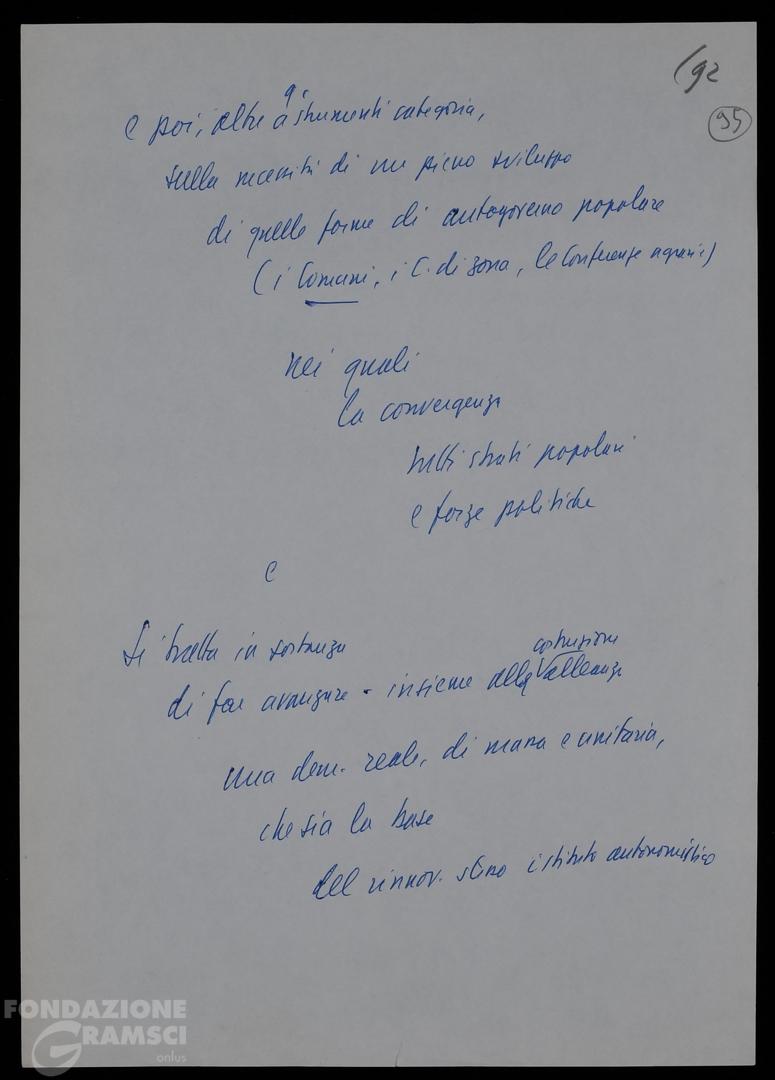 (92
95
e poi, oltre agli strumenti categoria,
sulla necessità di un pieno sviluppo
di quelle forme di autogoverno popolare
(i Comuni, i C. di zona, le Conferenze agrarie)
nei quali
la convergenza
tutti strati popolari
e forze politiche
e
Si tratta in sostanza
di far avanzare - insieme alla costruzione alleanze
una dem. reale, di massa e unitaria,
che sia la base
del rinnov. stesso istituto autonomistico
FONDAZIONE
GRAMSCI
onlus